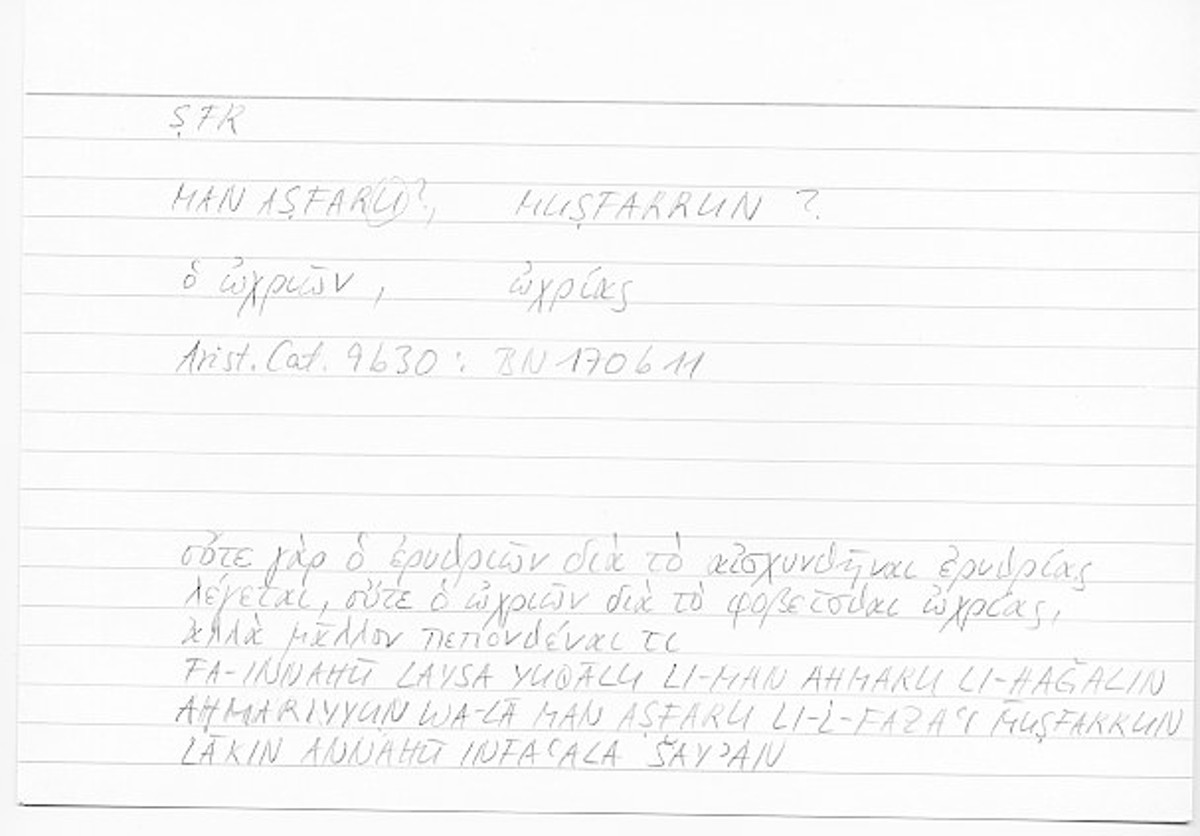 ṢFR
MAN AṢFARU?, MUṢFARRUN ?
ὁ ὠχριῶν, ὠχρίας
Arist. Cat. 9b30 : BN 170b11
οὔτε γὰρ ὁ ἐρυθριῶν διὰ τὸ αἰσχυνθῆναι ἐρυθρίας
λέγεται, οὔτε ὁ ὠχριῶν διὰ τὸ φοβεῖσθαι ὠχρίας,
ἀλλὰ μᾶλλον πεπονθέναι τι
FA-INNAHŪ LAYSA YUQĀLU LI-MAN AḤMARU LI-ḤAǦALIN
AḤMARIYYUN WA-LĀ MAN AṢFARU LI-L-FAZAʿI MUṢFARRUN
LĀKIN ANNAHŪ INFAʿALA ŠAYʾAN